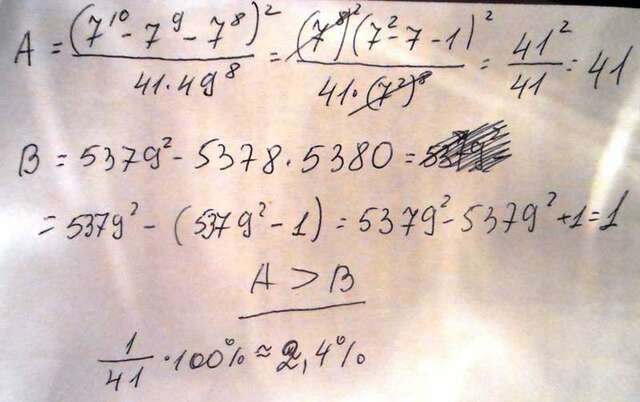 A = (7¹⁰ - 7⁹ - 7⁸)² / 41·49⁸ = (7⁸)²(7² - 7 - 1)² / 41·(7²)⁸ = 41² / 41 = 41
B = 5379² - 5378·5380 =
= 5379² - (5379² - 1) = 5379² - 5379² + 1 = 1
A > B
1/41 · 100% ≈ 2,4%